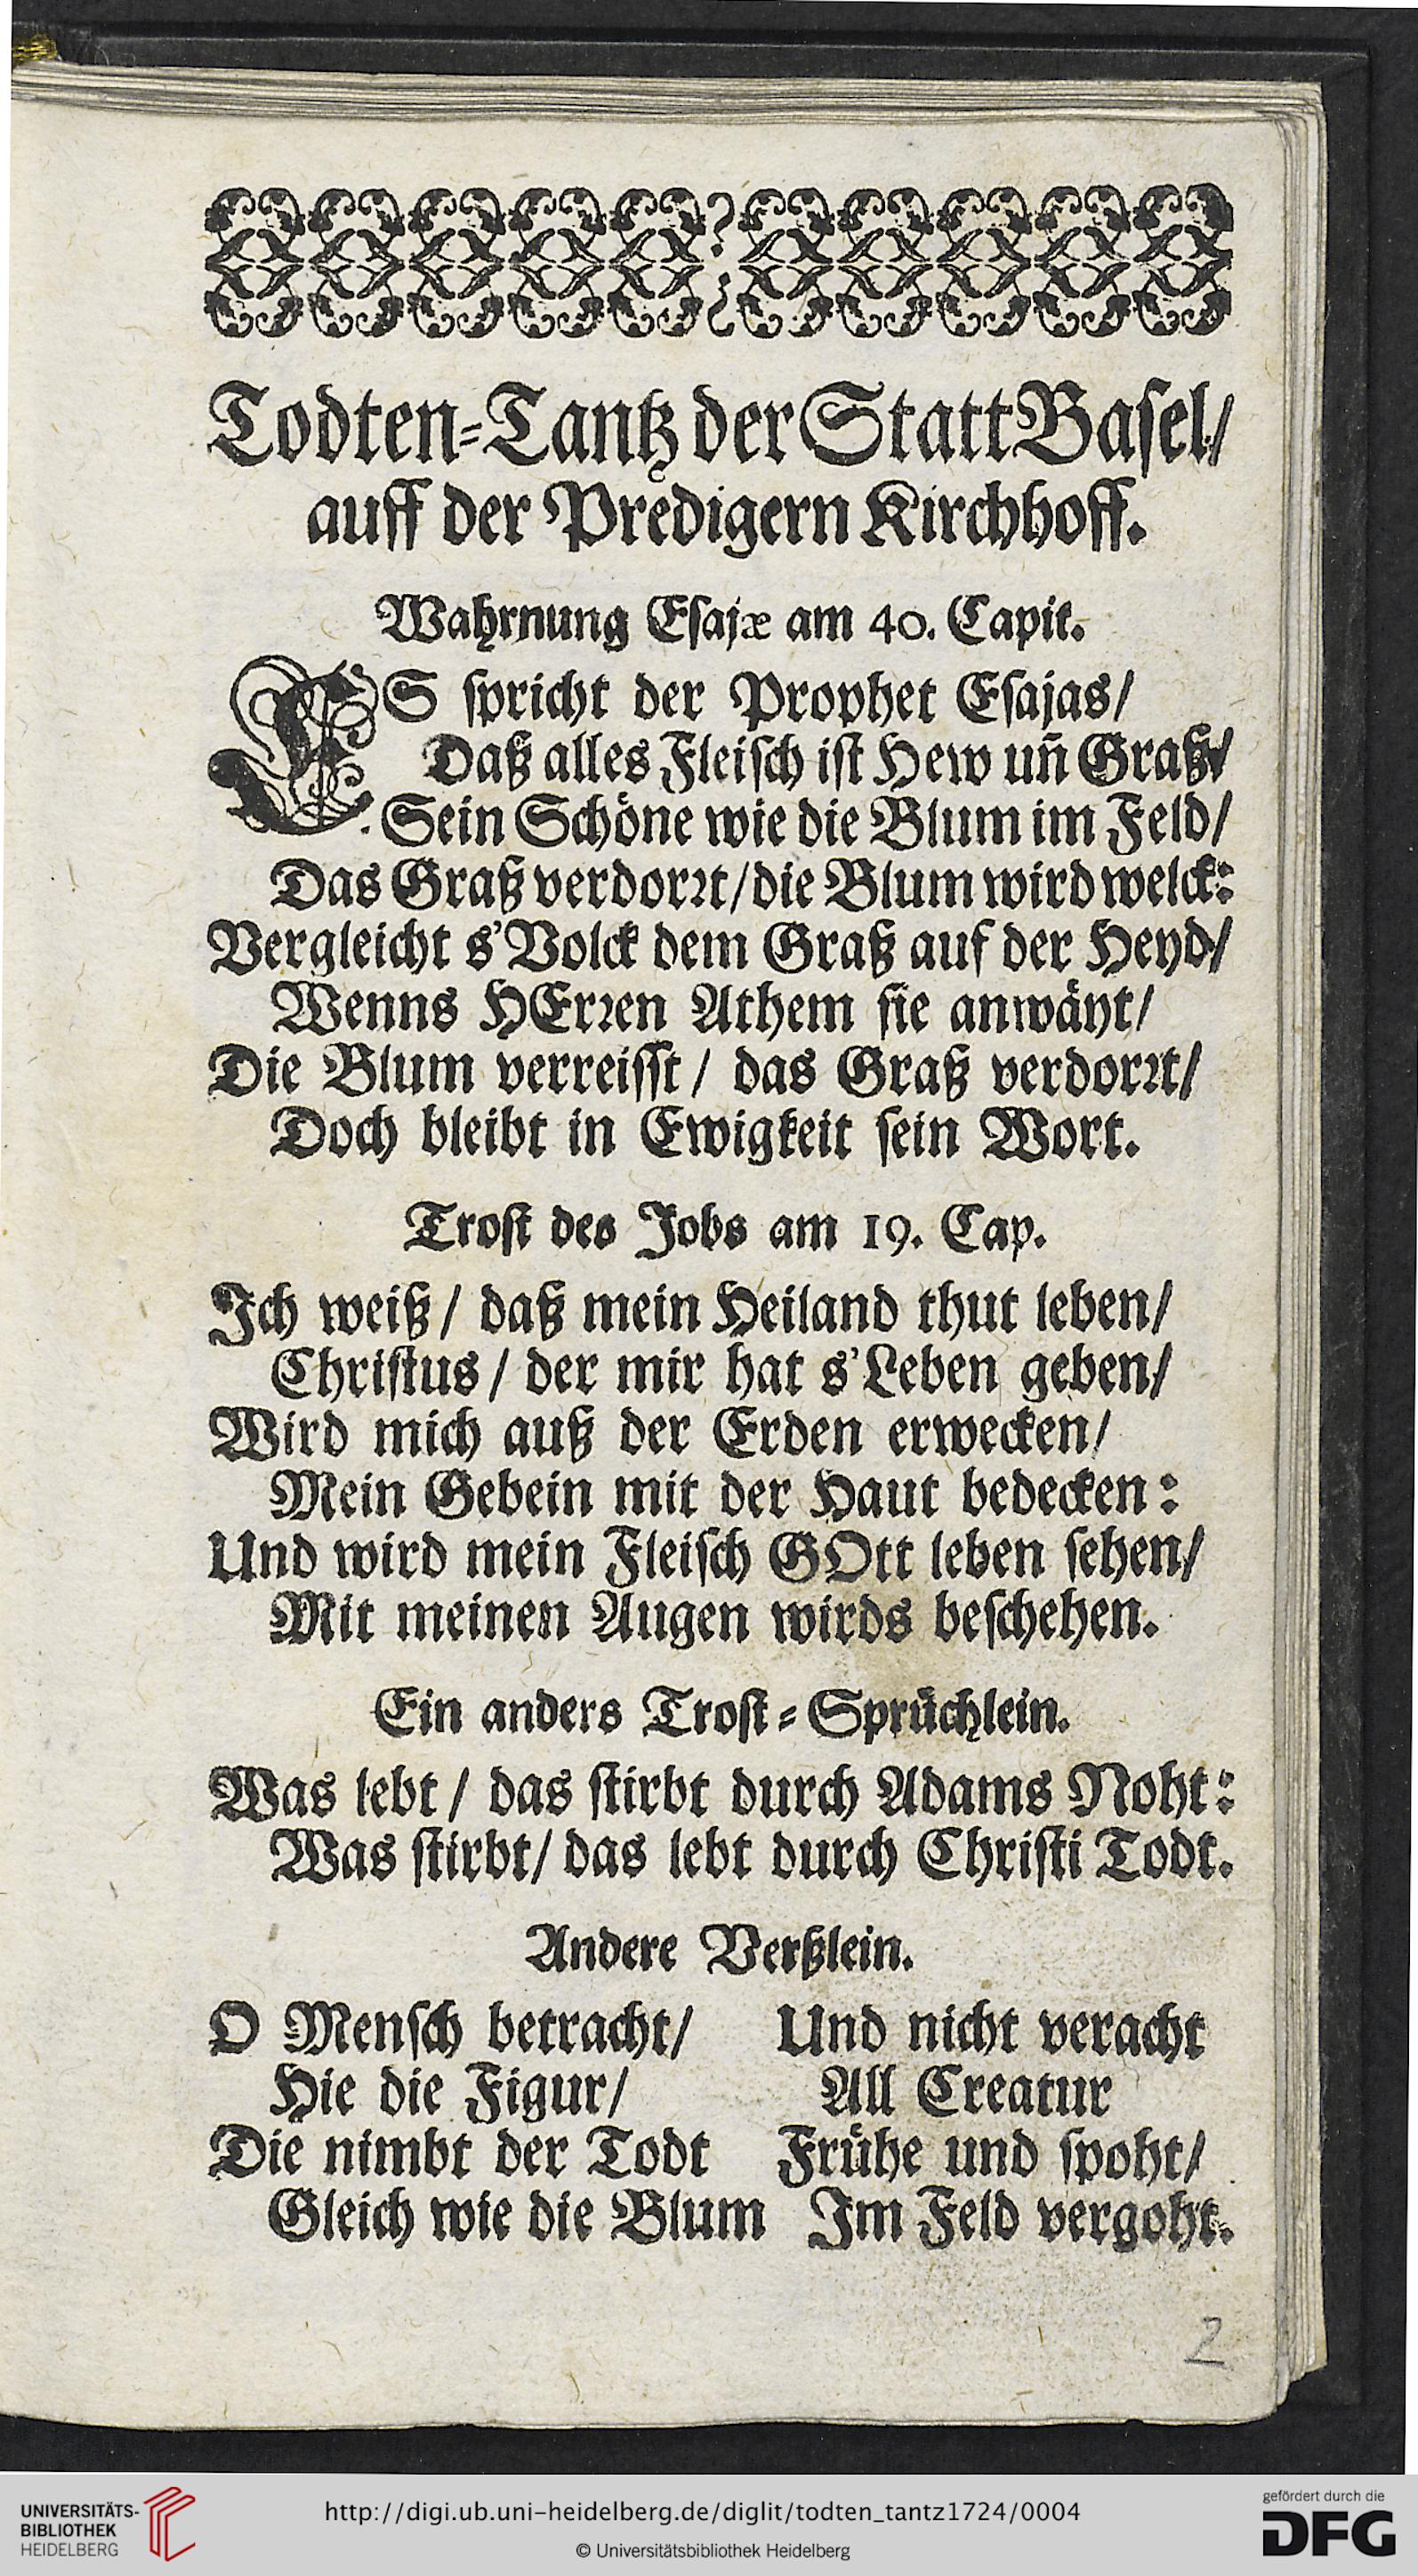 Todten-Tantz der Statt Basel/
auff der Predigern Kirchhoff.
Wahrnung Esajæ am 40. Capit.
ES spricht der Prophet Esajas/
Daß alles Fleisch ist Hew uñ Graß/
Sein Schöne wie die Blum im Feld/
Das Graß verdorrt/die Blum wird welck:
Vergleicht s'Volck dem Graß auf der Heyd/
Wenns HErren Athem sie anwäyt/
Die Blum verreisst/ das Graß verdorrt/
Doch bleibt in Ewigkeit sein Wort.
Trost des Jobs am 19. Cap.
Ich weiß/ daß mein Heiland thut leben/
Christus/ der mir hat s'Leben geben/
Wird mich auß der Erden erwecken/
Mein Gebein mit der Haut bedecken:
Und wird mein Fleisch GOtt leben sehen/
Mit meinen Augen wirds beschehen.
Ein anders Trost-Sprüchlein.
Was lebt/ das stirbt durch Adams Noht:
Was stirbt/ das lebt durch Christi Todt.
Andere Verßlein.
O Mensch betracht/ Und nicht veracht
Hie die Figur/ All Creatur
Die nimbt der Todt Frühe und spoht/
Gleich wie die Blum Im Feld vergoht.
2
UNIVERSITÄTS-
BIBLIOTHEK
HEIDELBERG
http://digi.ub.uni-heidelberg.de/diglit/todten_tantz1724/0004
© Universitätsbibliothek Heidelberg
gefördert durch die
DFG